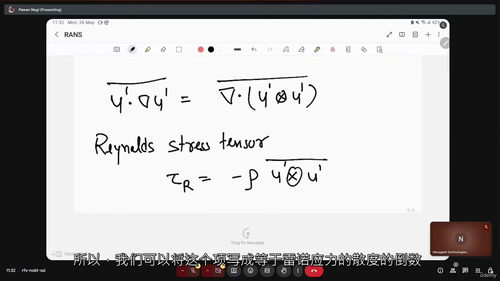 Pawan Negi (Presenting)
11:32 Mon, 26 May
RANS
u'·∇u' = ∇·(u'⊗u')
Reynolds stress tensor
τ_R = -ρ u'⊗u'
Drag for new page.
所以，我们可以将这个项写成等于雷诺应力的散度的倒数
11:32
rfv-nokt-ssi
N
ûdemy